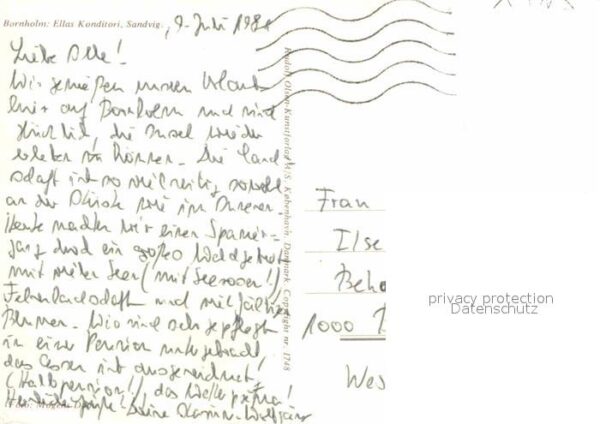 Bornholm: Ellas Konditori, Sandvig.
, 9. Juli 198
Liebe Alle!
Wir genießen unseren Urlaub
hier auf Bornholm und sind
glücklich, die Insel wieder
erleben zu können. Die Land
schaft ist so vielseitig, sowohl
an der Küste wie im Inneren.
Heute machten wir einen Spazier-
gang durch ein großes Waldgebiet
mit vielen Seen (mit Seerosen!)
Felsenlandschaft und vielfältigen
Blumen. Wir sind sehr gepflegt
in einer Pension untergebracht,
das Essen ist ausgezeichnet
(Halbpension!), das Wetter prima!
Herzliche Grüße!
Rudolf Olsen-Kunstforlag A/S. København, Danmark. Copyright nr. 1748
Frau
Ilse
Beh
1000
Wes
privacy protection
Datenschutz